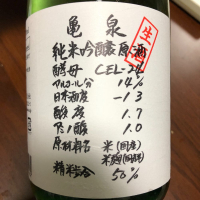 亀泉
生酒
純米吟醸原酒
酵母 CEL-24
アルコール分 14%
日本酒度 -13
酸度 1.7
アミノ酸 1.0
原料名 米(国産)
米麹(国産米)
精米歩合 50%